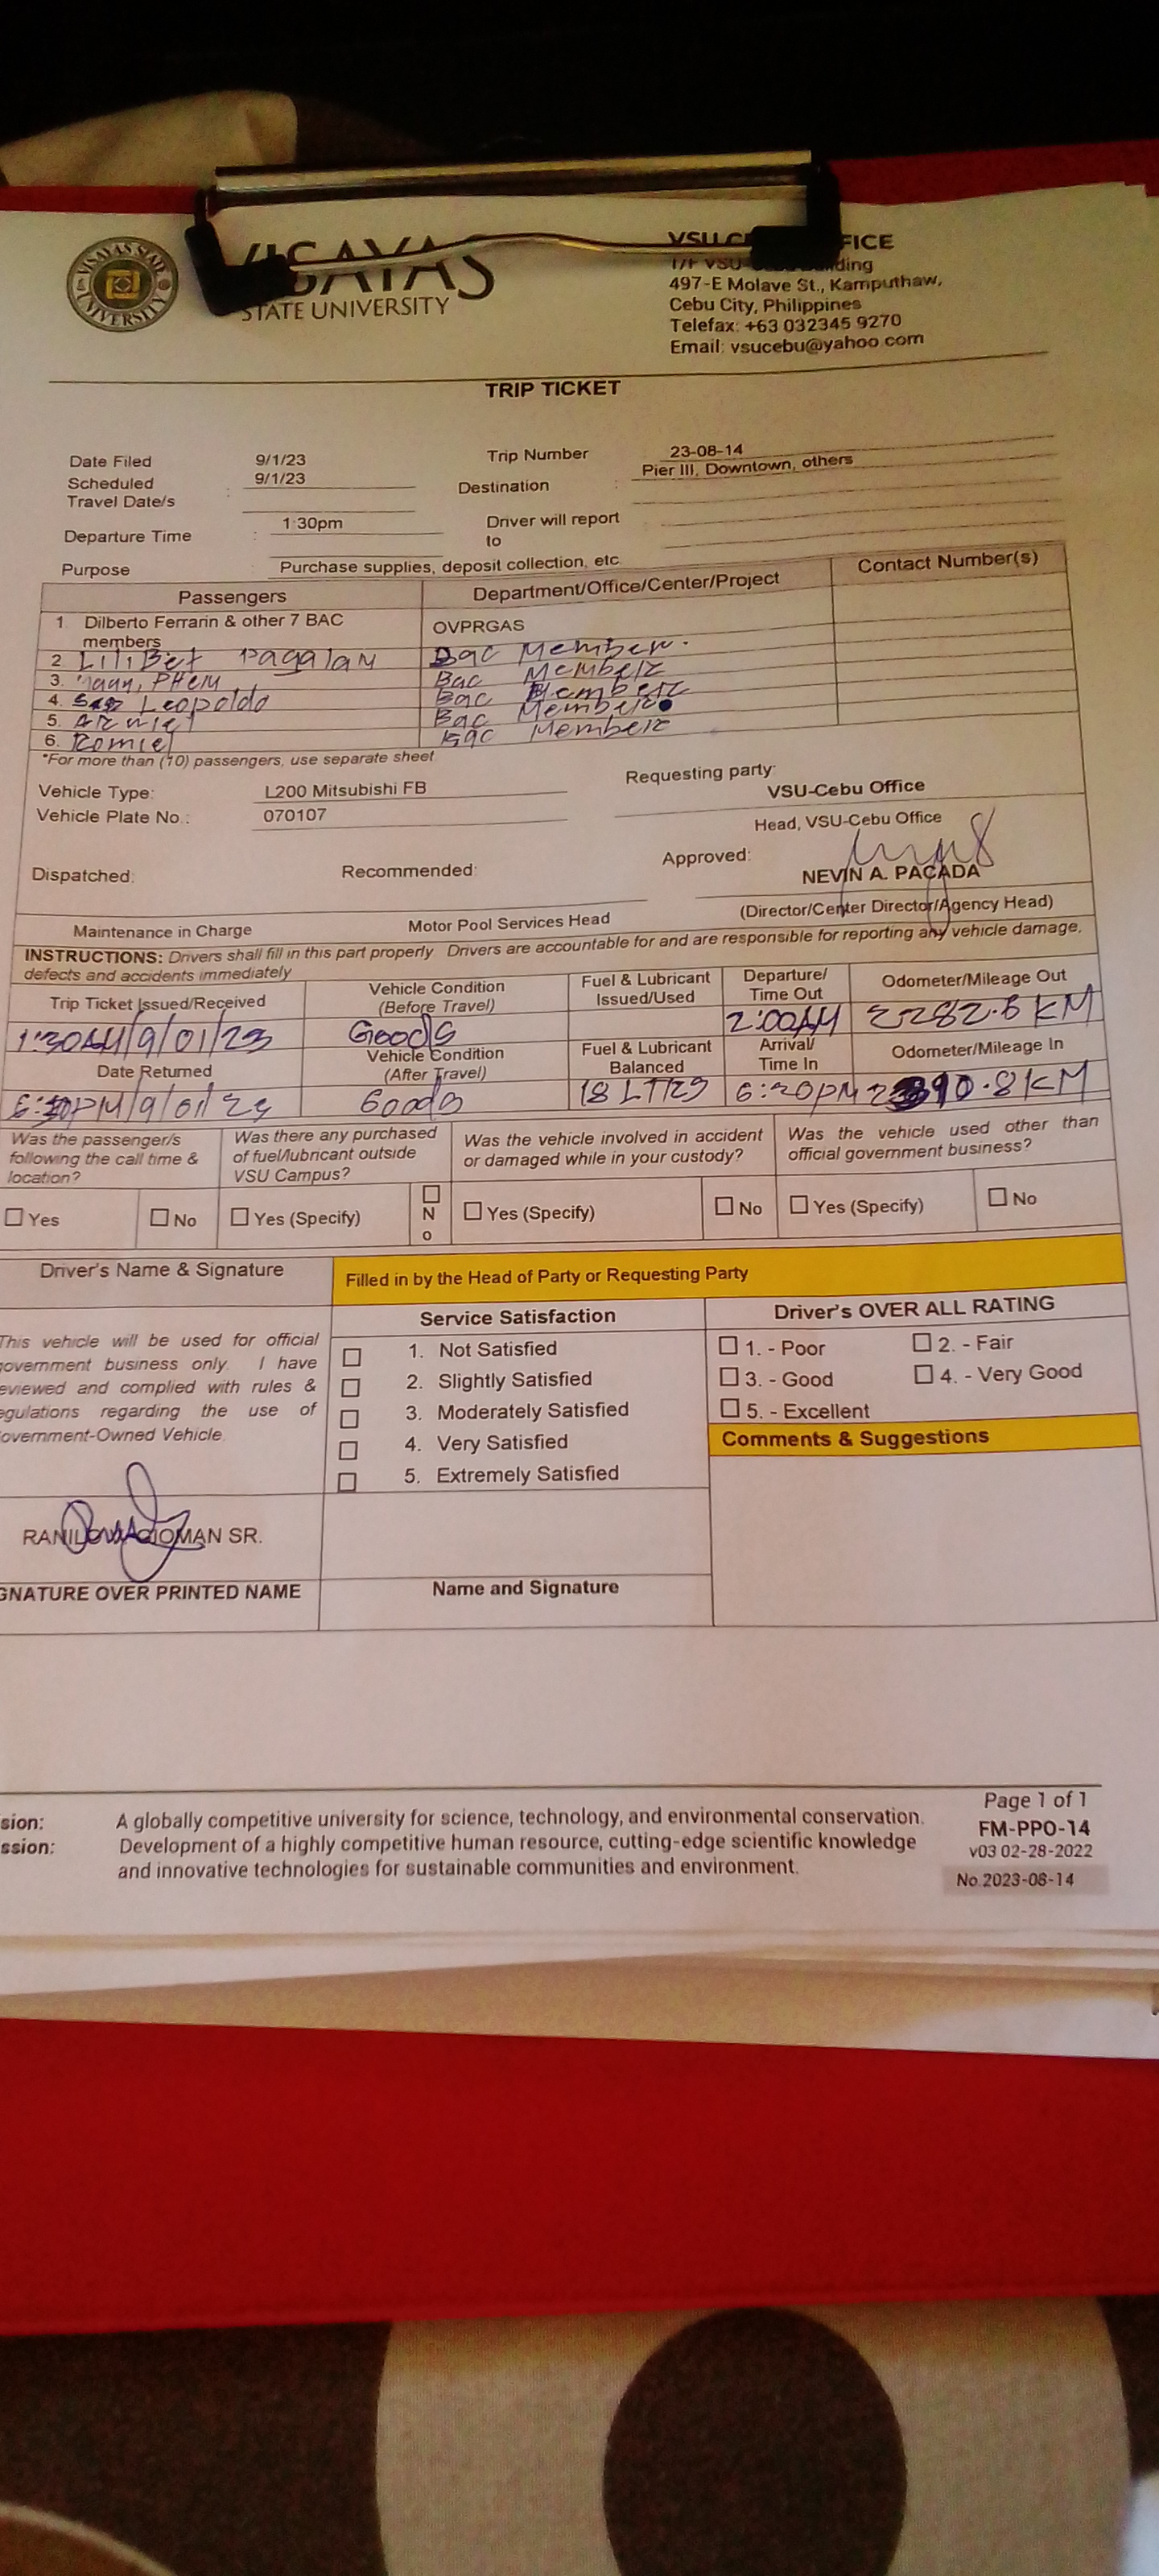 VISAYAS
STATE UNIVERSITY
VISAYAS STATE UNIVERSITY
497-E Molave St., Kamputhaw,
Cebu City, Philippines
Telefax: +63 032345 9270
Email: vsucebu@yahoo.com
TRIP TICKET
Date Filed 9/1/23 Trip Number 23-08-14
Scheduled Travel Date/s : 9/1/23 Destination : Pier III, Downtown, others
Departure Time : 1:30pm Driver will report to :
Purpose : Purchase supplies, deposit collection, etc.
Passengers Department/Office/Center/Project Contact Number(s)
1. Dilberto Ferrarin & other 7 BAC members OVPRGAS
2. LiliBet Pagalan Bac Member.
3. PHem Bac Member
4. Leopoldo Bac Member
5. Arniel Bac Member
6. Romiel Bac Member
*For more than (10) passengers, use separate sheet
Vehicle Type: L200 Mitsubishi FB Requesting party:
VSU-Cebu Office
Vehicle Plate No.: 070107
Head, VSU-Cebu Office
Dispatched: Recommended: Approved:
NEVIN A. PACADA
Maintenance in Charge Motor Pool Services Head (Director/Center Director/Agency Head)
INSTRUCTIONS: Drivers shall fill in this part properly. Drivers are accountable for and are responsible for reporting any vehicle damage,
defects and accidents immediately
Trip Ticket Issued/Received Vehicle Condition (Before Travel) Fuel & Lubricant Issued/Used Departure/ Time Out Odometer/Mileage Out
1:30AM/9/01/23 Goods 2:00AM 2282.6 KM
Date Returned Vehicle Condition (After Travel) Fuel & Lubricant Balanced Arrival/ Time In Odometer/Mileage In
9/01/23 Goods 18 6:20PM KM
Was the passenger/s following the call time & location?
Was there any purchased of fuel/lubricant outside VSU Campus?
Was the vehicle involved in accident or damaged while in your custody?
Was the vehicle used other than official government business?
Yes No Yes (Specify) No Yes (Specify) No Yes (Specify) No
Driver's Name & Signature Filled in by the Head of Party or Requesting Party
Service Satisfaction Driver's OVER ALL RATING
This vehicle will be used for official
government business only. I have
reviewed and complied with rules &
regulations regarding the use of
Government-Owned Vehicle.
1. Not Satisfied
2. Slightly Satisfied
3. Moderately Satisfied
4. Very Satisfied
5. Extremely Satisfied
1. - Poor 2. - Fair
3. - Good 4. - Very Good
5. - Excellent
Comments & Suggestions
SR.
SIGNATURE OVER PRINTED NAME Name and Signature
A globally competitive university for science, technology, and environmental conservation.
Development of a highly competitive human resource, cutting-edge scientific knowledge
and innovative technologies for sustainable communities and environment.
Page 1 of 1
FM-PPO-14
v03 02-28-2022
No.2023-08-14